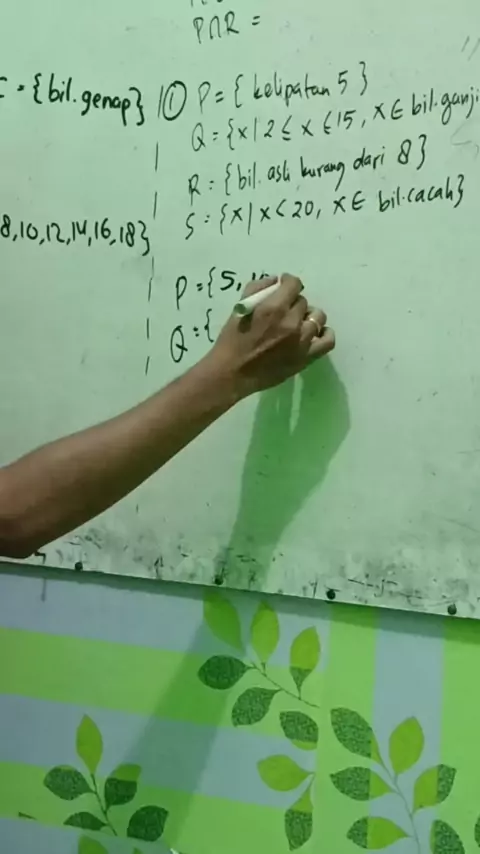 P∩R =
C = {bil.genap}
8,10,12,14,16,18}
① P = { kelipatan 5 }
Q = {x | 2 ≤ x ≤ 15, x ∈ bil.ganji
R = {bil. asli kurang dari 8}
S = {x | x < 20, x ∈ bil.cacah}
P = {5, 10
Q = {